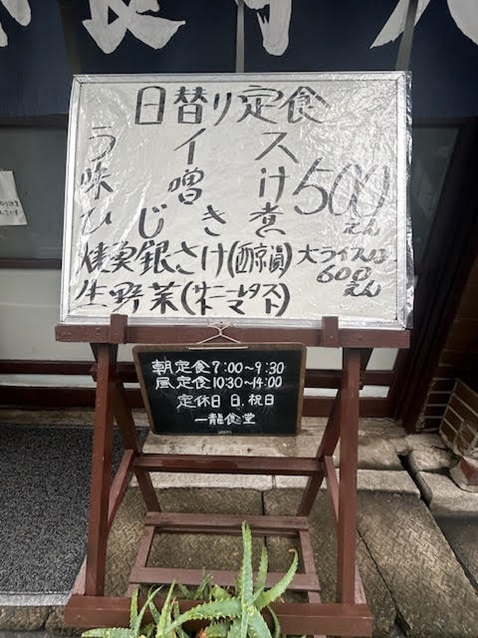 日替り定食
ライス
味噌け
ひじき煮
500えん
焼魚銀さけ(西京漬)
大ライスは600えん
生野菜(レタストマト)
朝定食 7:00～9:30
昼定食 10:30～14:00
定休日 日、祝日
一龍食堂